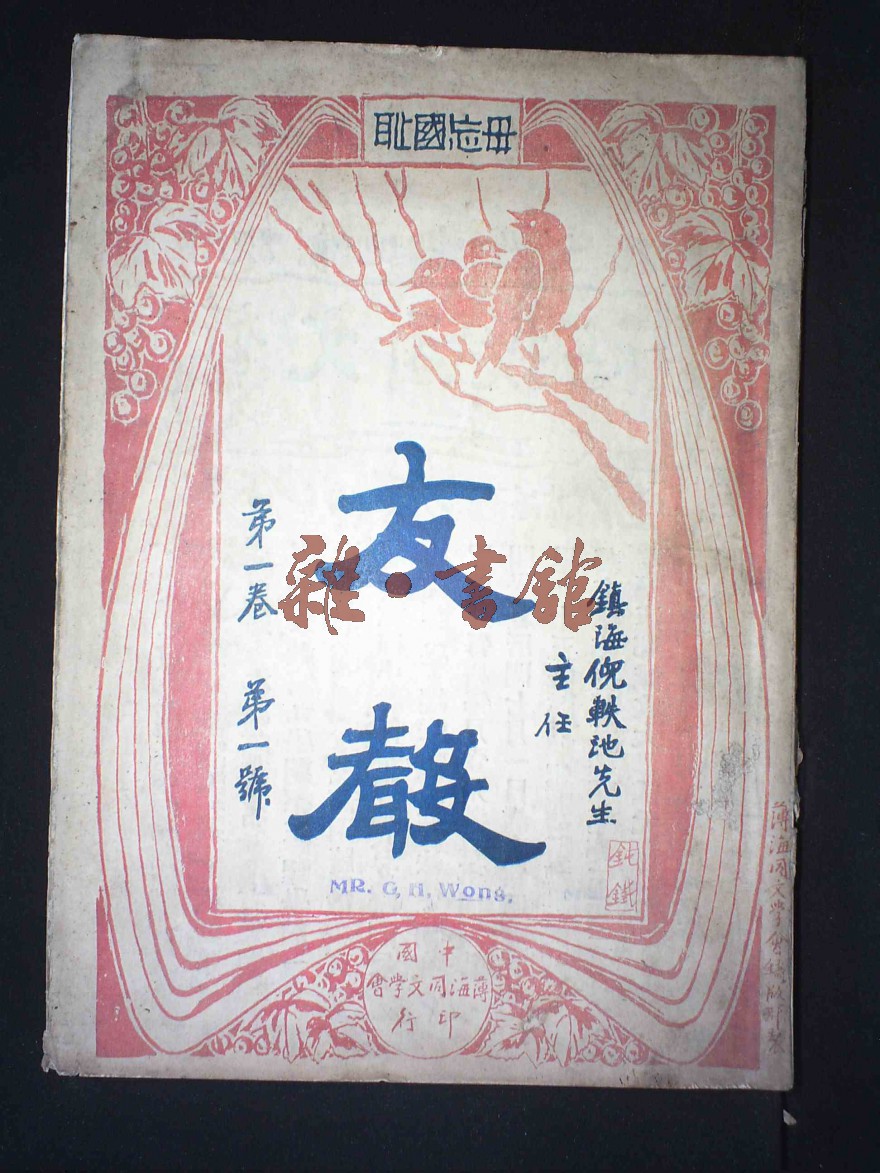 毋忘國耻
鎮海倪軼池先生
主任
友聲
第一卷 第一號
雜·書館
鈍鐵
MR. G. H. Wong.
中國
薄海同文學會
印行
薄海同文學會